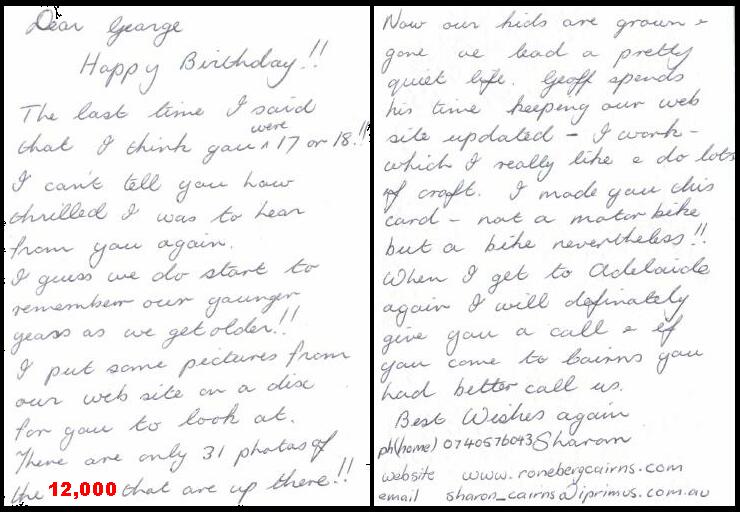 Dear George
Happy Birthday!!
The last time I said
that I think you were 17 or 18.!!
I can't tell you how
thrilled I was to hear
from you again.
I guess we do start to
remember our younger
years as we get older!!
I put some pictures from
our web site on a disc
for you to look at.
There are only 31 photos of
the 12,000 that are up there!!
Now our kids are grown &
gone we lead a pretty
quiet life. Geoff spends
his time keeping our web
site updated - I work -
which I really like & do lots
of craft. I made you this
card - not a motor bike
but a bike nevertheless!!
When I get to Adelaide
again I will definately
give you a call & if
you come to Cairns you
had better call us.
Best Wishes again
ph(home) 0740576043 Sharon
website www.ronebergcairns.com
email sharon_cairns@iprimus.com.au